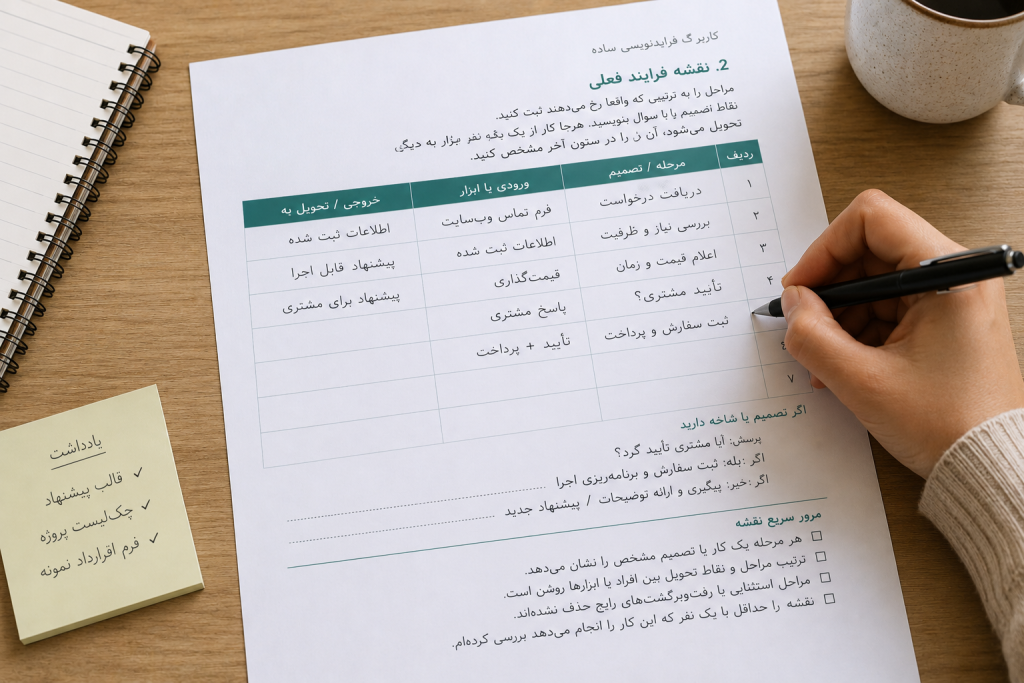 کاربر گ فرایندنویسی ساده
2. نقشه فرایند فعلی
مراحل را به ترتیبی که واقعا رخ می‌دهند ثبت کنید.
نقاط را با سوال بنویسید. هرجا کار از یک نفر به
تحویل می‌شود، آن را در ستون آخر مشخص کنید.
ردیف مرحله / تصمیم ورودی یا ابزار خروجی / تحویل به
۱ دریافت درخواست فرم تماس وب‌سایت اطلاعات ثبت شده
۲ بررسی نیاز و ظرفیت اطلاعات ثبت شده پیشنهاد قابل اجرا
۳ اعلام قیمت و زمان قیمت‌گذاری پیشنهاد برای مشتری
۴ تأیید مشتری؟ پاسخ مشتری
ثبت سفارش و پرداخت تأیید + پرداخت
۷
اگر تصمیم یا شاخه دارید
پرسش: آیا مشتری تأیید گرد؟
اگر :بله: ثبت سفارش و برنامه‌ریزی اجرا
اگر :خیر: پیگیری و ارائه توضیحات / پیشنهاد جدید
مرور سریع نقشه
هر مرحله یک کار یا تصمیم مشخص را نشان می‌دهد.
ترتیب مراحل و نقاط تحویل بین افراد یا ابزارها روشن است.
مراحل استثنایی یا رفت‌وبرگشت‌های رایج حذف نشده‌اند.
نقشه را حداقل با یک نفر که این کار را انجام می‌دهد بررسی کرده‌ام.
یادداشت
✓ قالب پیشنهاد
✓ چک‌لیست پروژه
✓ فرم اقرارداد نمونه